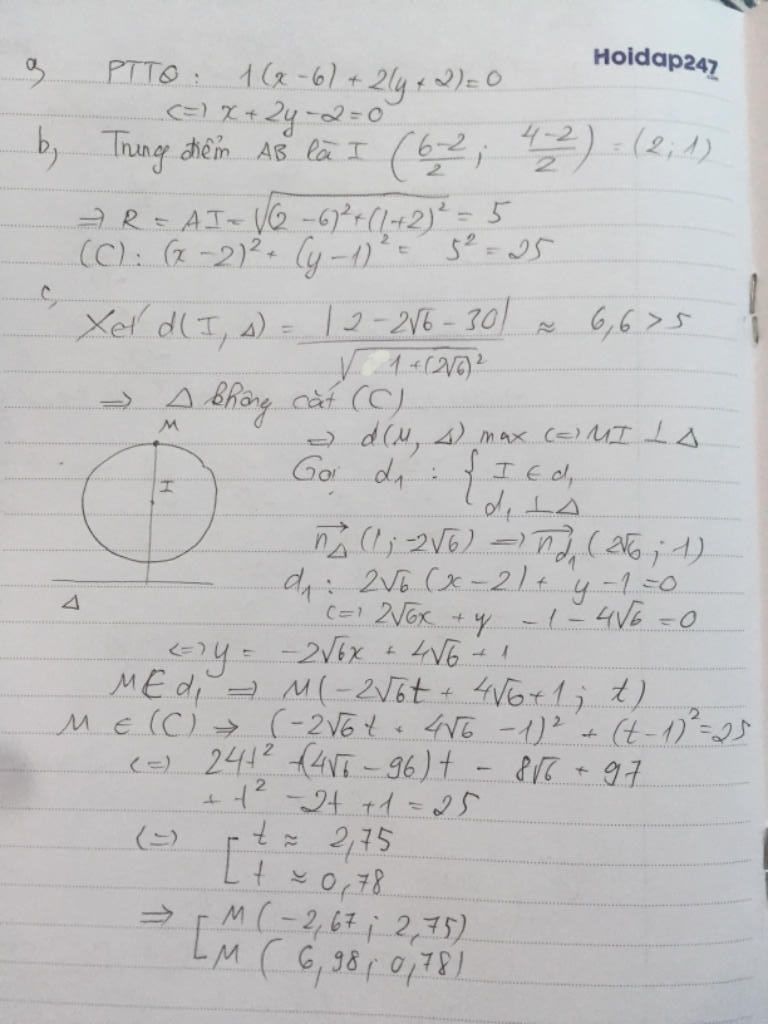 Hoidap247
.com
a, PTTQ: 1(x-6) + 2(y+2)=0
<=> x+2y-2=0
b, Trung điểm AB là I (6-2/2; 4-2/2) = (2; 1)
=> R = AI = √(2-6)²+(1+2)² = 5
(C): (x-2)² + (y-1)² = 5² = 25
c,
Xét d(I, Δ) = |2-2√6-30| / √1+(2√6)² ≈ 6,6 > 5
=> Δ không cắt (C)
=> d(M, Δ) max <=> MI ⊥ Δ
Gọi d₁ : { I ∈ d₁
d₁ ⊥ Δ
M
I
Δ
n⃗Δ (1; -2√6) => n⃗d₁ (2√6; 1)
d₁: 2√6 (x-2) + y-1=0
<=> 2√6x + y -1-4√6 =0
<=> y = -2√6x + 4√6 + 1
M∈d₁ => M(-2√6t + 4√6+1; t)
M ∈ (C) => (-2√6t + 4√6 -1)² + (t-1)²=25
<=> 24t² +(4√6-96)t - 8√6 + 97
+ t² -2t +1 = 25
<=> [ t ≈ 2,75
t ≈ 0,78
=> [ M(-2,67; 2,75)
M( 6,98; 0,78)